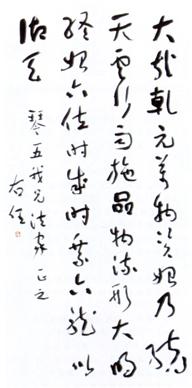 大哉乾元萬物資始乃統
天雲行雨施品物流形大明
終始六位時成時乘六龍以
御天
琴五我兄法家正之
右任